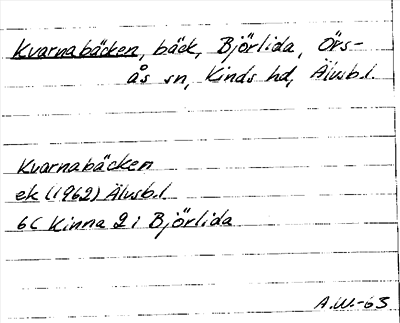 Kvarnabäcken, bäck, Björlida, Örs-
ås sn, Kinds hd, Älvsb.l.
Kvarnabäcken
ek (1962) Älvsb.l
6C Kinna 2 i Björlida
A.W.-63